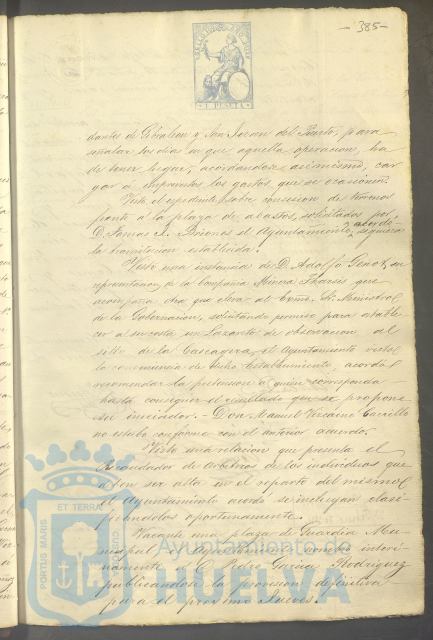 - 385 -
SELLO
1 PESETA
dantes de Gibraleon y San Juan del Puerto para
señalar los dias en que aquella operacion, ha
de tener lugar, acordandose asimismo, car
gar á imprevistos los gastos que se ocasionen.
Visto el espediente sobre concesion de terrenos
frente á la plaza de abastos, solicitados por
D. Tomas el Ayuntamiento, acordó siguiera
la tramitacion establecida.
Visto una instancia de D. Adolfo Genot, en
representacion de la Compañia Minera Tharsis que
acompaña otra que eleva al Excmo. Sr. Ministro
de la Gobernacion, solicitando permiso para estable
cer a su costa un Lazareto de observacion al
sitio de la Cascagera, el Ayuntamiento visto
la conveniencia de dicho Establecimiento, acordó
recomendar la peticion á quien corresponda
hasta conseguir el resultado que se propone
su iniciador. - Don Manuel Vizcaino Carrillo
no estubo conforme con el anterior acuerdo.
Visto una relacion que presenta el
Recaudador de Arbitrios de los individuos que
deben ser alta en el reparto del mismo, el
Ayuntamiento acordó se incluyan clasi
ficandolos oportunamente.
Vacante una plaza de Guardia Mu
nicipal el Ayuntamiento nombró interi
namente á D. Pedro Garcia Rodriguez
publicandose la provision definitiva
para el proximo Jueves.
PORTUS MARIS ET TERRAE CUSTODIA
Ayuntamiento de
HUELVA